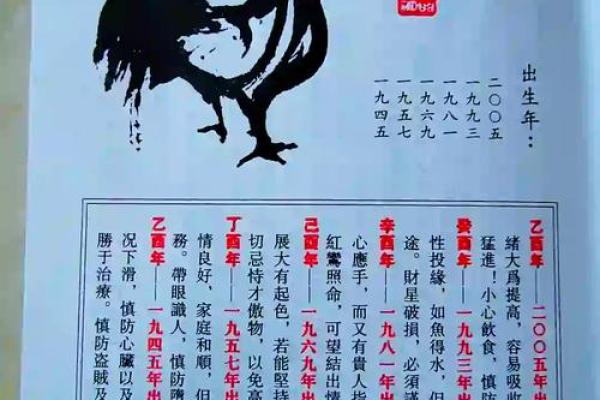 出生年：
二〇〇五
一九九三
一九八一
一九六九
一九五七
一九四五
乙酉年——二〇〇五年出
緒大爲提高，容易吸收
猛進！小心飲食，慎防
癸酉年——一九九三年出
性投緣，如魚得水，但
途。財星破損，必須謹
辛酉年——一九八一年出
心應手，而又有貴人指
紅鸞照命，可望結出情
己酉年——一九六九年出
展大有起色，若能堅持
切忌恃才傲物，以免高
丁酉年——一九五七年出
情良好，家庭和順，但
務。帶眼識人，慎防
乙酉年——一九四五年出
况下滑，慎防心臟以及
勝于治療。慎防盜賊及